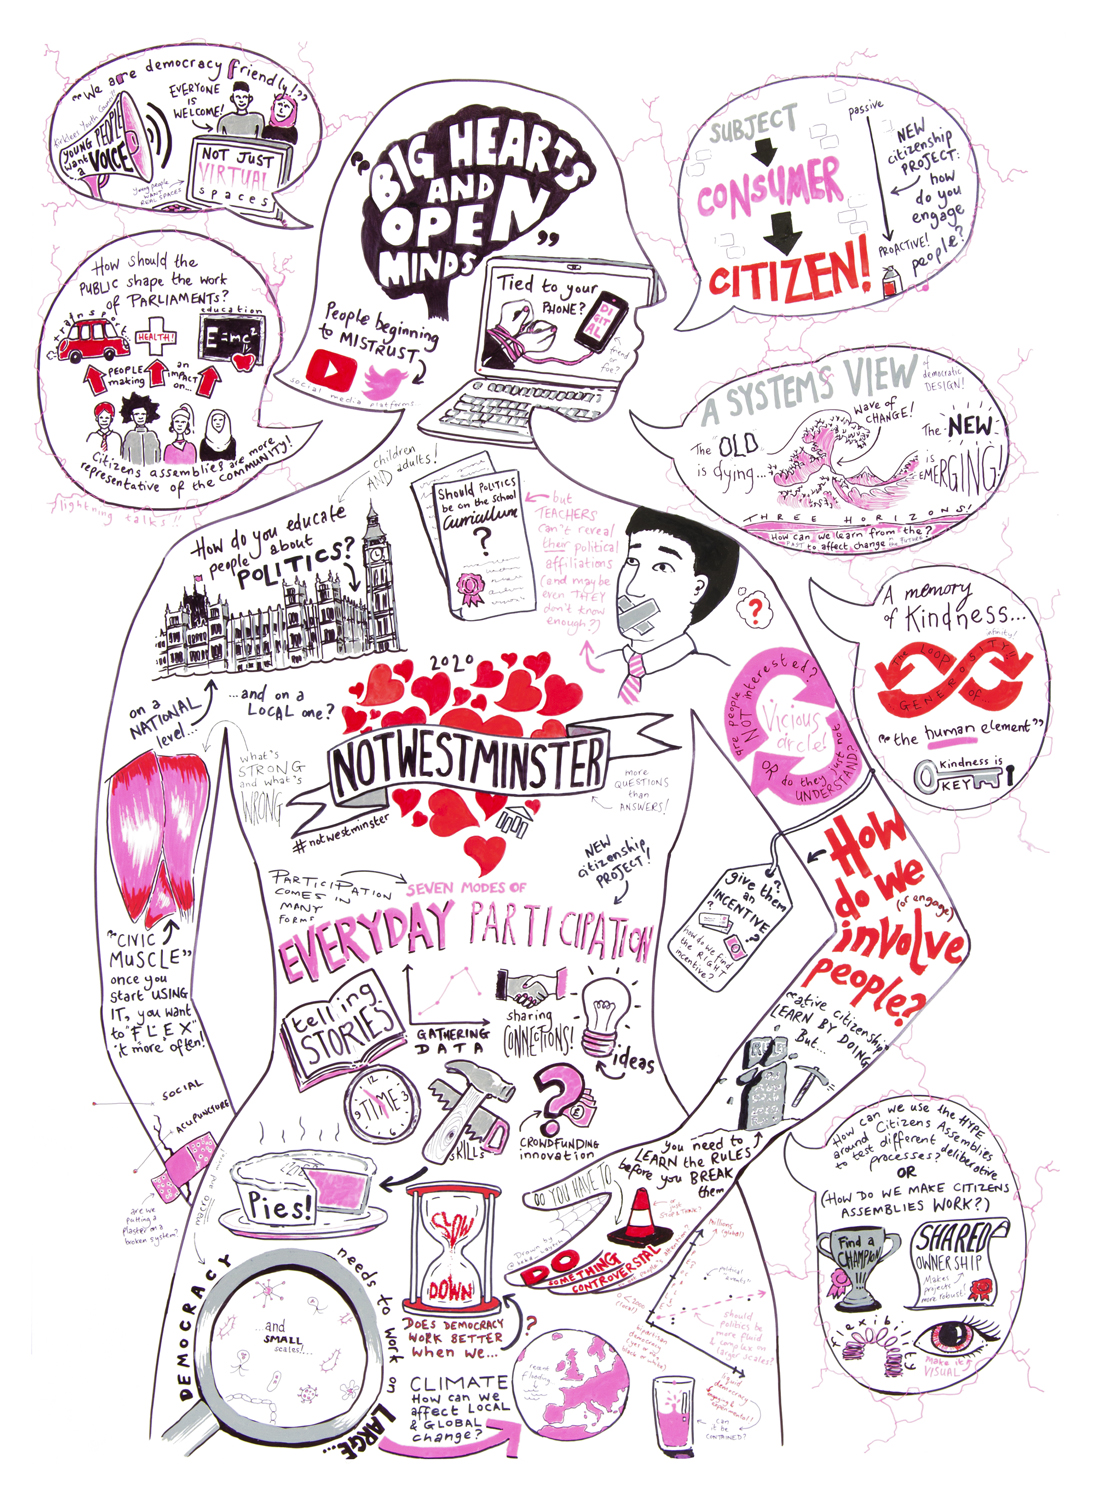 "We are democracy friendly!"
Kirklees Youth Council
YOUNG PEOPLE
want a
VOICE
EVERYONE
IS
WELCOME!
NOT JUST
VIRTUAL
spaces
Young people
WANT
REAL SPACES
How should the
PUBLIC shape the work
of PARLIAMENTS?
transport
HEALTH!
education
E=mc²
PEOPLE
making
an
IMPACT
on...
Citizens assemblies are more
representative of the COMMUNITY!
lightning talks!!
"BIG HEARTS
AND
OPEN
MINDS"
People beginning
to MISTRUST
social media platforms
Tied to your
PHONE?
DIGITAL
friend
or
foe?
SUBJECT
CONSUMER
CITIZEN!
passive
NEW
citizenship
PROJECT:
how
do you
engage
people?
PROACTIVE!
A SYSTEMS VIEW
of
democratic
DESIGN!
The OLD
is dying...
wave of
CHANGE!
The NEW
is
EMERGING!
THREE HORIZONS!
How can we learn from the?
PAST to affect change in FUTURE
A memory
of Kindness...
infinity!
The LOOP
OF
GENEROSITY!!
"the human element"
Kindness is
KEY
children
AND adults!
How do you educate
people about
POLITICS?
on a
NATIONAL
level...
...and on a
LOCAL one?
Should POLITICS
be on the school
Curriculum
?
but
TEACHERS
can't reveal
their political
affiliations
(and maybe
even THEY
don't know
enough?)
?
are people
NOT interested?
Vicious
circle!
OR do they just not
UNDERSTAND?
2020
NOTWESTMINSTER
#notwestminster
what's
STRONG
and what's
WRONG
more
QUESTIONS
than
ANSWERS!
NEW
citizenship
PROJECT!
PARTICIPATION
COMES IN
MANY
FORMS
SEVEN MODES OF
EVERYDAY PARTICIPATION
telling
STORIES
GATHERING
DATA
sharing
CONNECTIONS!
ideas
TIME
12
3
6
9
SKILLS
?
CROWDFUNDING
innovation
"CIVIC
MUSCLE"
once you
start USING
IT, you want
to "FLEX"
it more often!
SOCIAL
ACUPUNCTURE
are we
putting a
plaster on a
broken system?
How
do we
(or engage)
involve
people?
give them
an
INCENTIVE
?
how do we find
the RIGHT
incentive?
"Active citizenship
LEARN BY DOING
But...
RULES
you need to
LEARN the RULES
before you BREAK
them
Pies!
macro and micro!
DEMOCRACY
needs to work on
LARGE...
...and
SMALL
scales!...
SLOW
DOWN
DOES DEMOCRACY
WORK BETTER
when we...
?
DO YOU HAVE TO
DO
SOMETHING
CONTROVERSIAL
Drawn by
political
events
should
politics be
more fluid
& complex on
larger scales?
liquid
democracy
can
it be
CONTAINED?
CLIMATE
How can we
affect LOCAL
& GLOBAL
change?
How can we use the HYPE
around Citizens Assemblies
to test different deliberative
processes?
OR
(HOW DO WE MAKE CITIZENS
ASSEMBLIES WORK?)
Find a
CHAMPION
SHARED
OWNERSHIP
Makes
projects
more robust!
flexibility
Make it
VISUAL